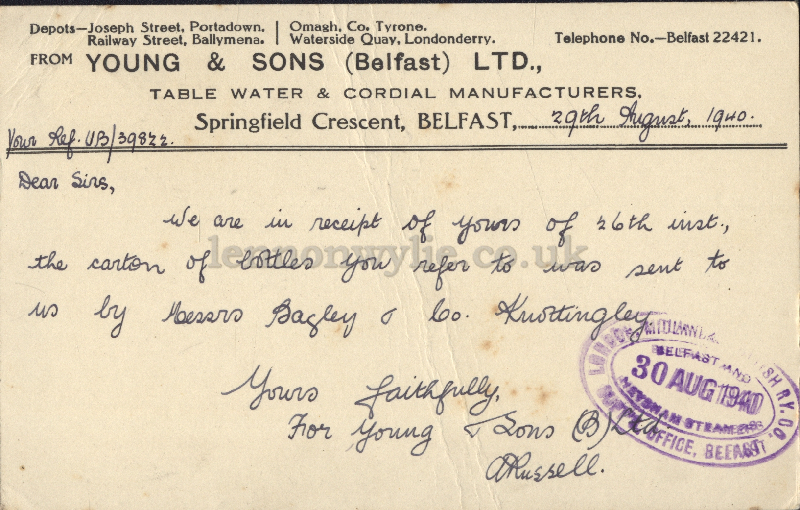 Depots—Joseph Street, Portadown. Omagh, Co. Tyrone.
Railway Street, Ballymena. Waterside Quay, Londonderry. Telephone No.—Belfast 22421.
FROM YOUNG & SONS (Belfast) LTD.,
TABLE WATER & CORDIAL MANUFACTURERS.
Springfield Crescent, BELFAST, 29th August, 1940.
Your Ref. UB/39822.
Dear Sirs,
We are in receipt of yours of 26th inst.,
the carton of bottles you refer to was sent to
lennonwylie.co.uk
us by Messrs Bagley & Co. Knottingley
Yours faithfully,
For Young & Sons (B) Ltd.
ARussell.
LONDON MIDLAND & SCOTTISH RY. CO.
BELFAST AND
30 AUG 1940
HEYSHAM STEAMERS
OFFICE, BELFAST